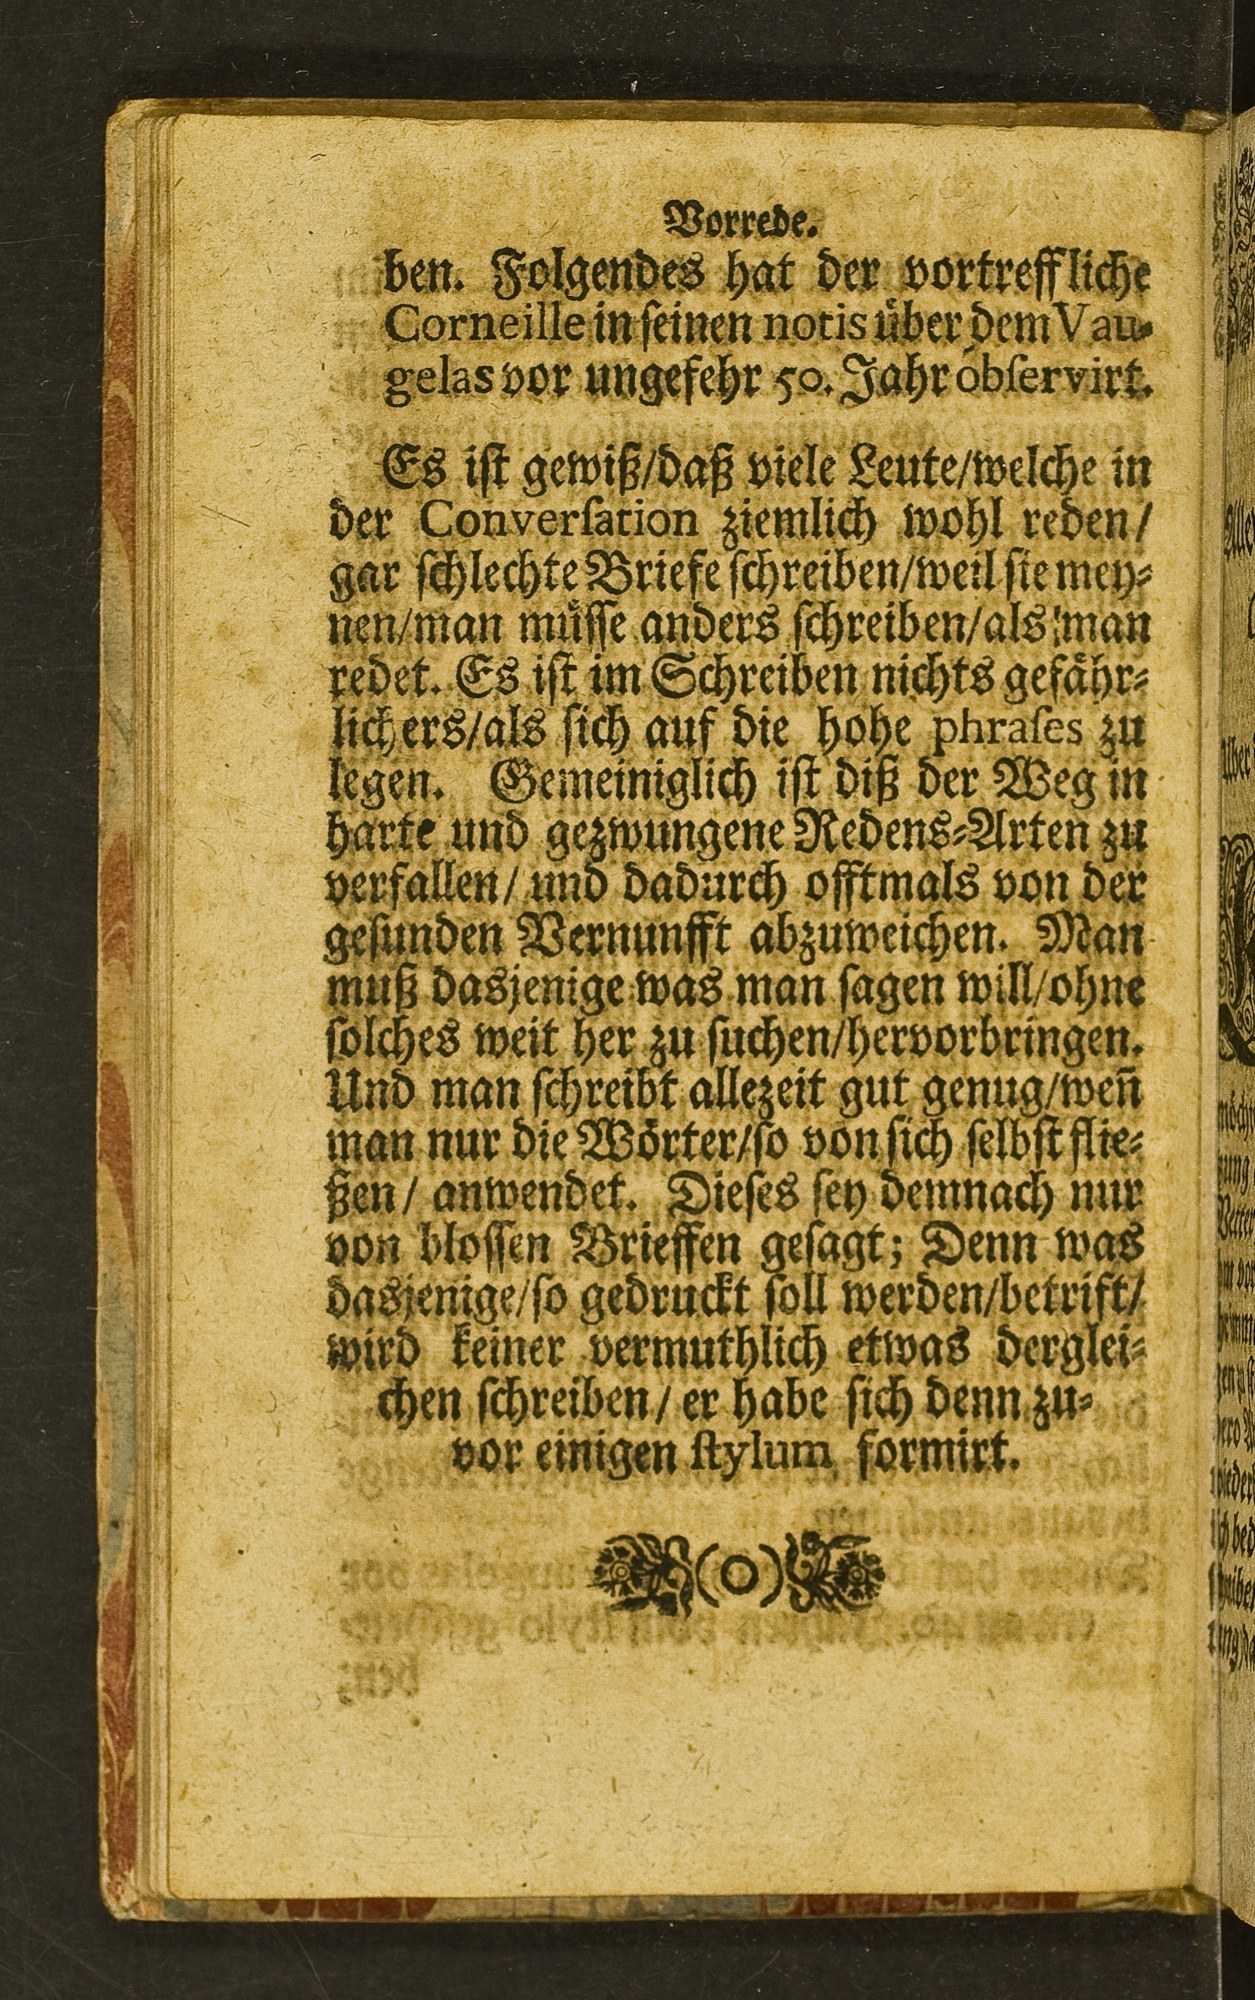 Vorrede.
ben. Folgendes hat der vortreffliche
Corneille in ſeinen notis uͤber dem Vau⸗
gelas vor ungefehr 50. Jahr obſervirt.
Es iſt gewiß/daß viele Leute/welche in
der Converſation ziemlich wohl reden/
gar ſchlechte Briefe ſchreiben/weil ſie mey⸗
nen/man muͤſſe anders ſchreiben/als man
redet. Es iſt im Schreiben nichts gefaͤhr⸗
lichers/als ſich auf die hohe phraſes zu
legen. Gemeiniglich iſt diß der Weg in
harte und gezwungene Redens⸗Arten zu
verfallen/ und dadurch offtmals von der
geſunden Vernunfft abzuweichen. Man
muß dasjenige was man ſagen will/ohne
ſolches weit her zu ſuchen/hervorbringen.
Und man ſchreibt allezeit gut genug/weñ
man nur die Woͤrter/ſo von ſich ſelbſt flie⸗
ßen/ anwendet. Dieſes ſey demnach nur
von bloſſen Brieffen geſagt; Denn was
dasjenige/ſo gedruckt ſoll werden/betrift/
wird keiner vermuthlich etwas derglei⸗
chen ſchreiben/ er habe ſich denn zu⸗
vor einigen ſtylum formirt.